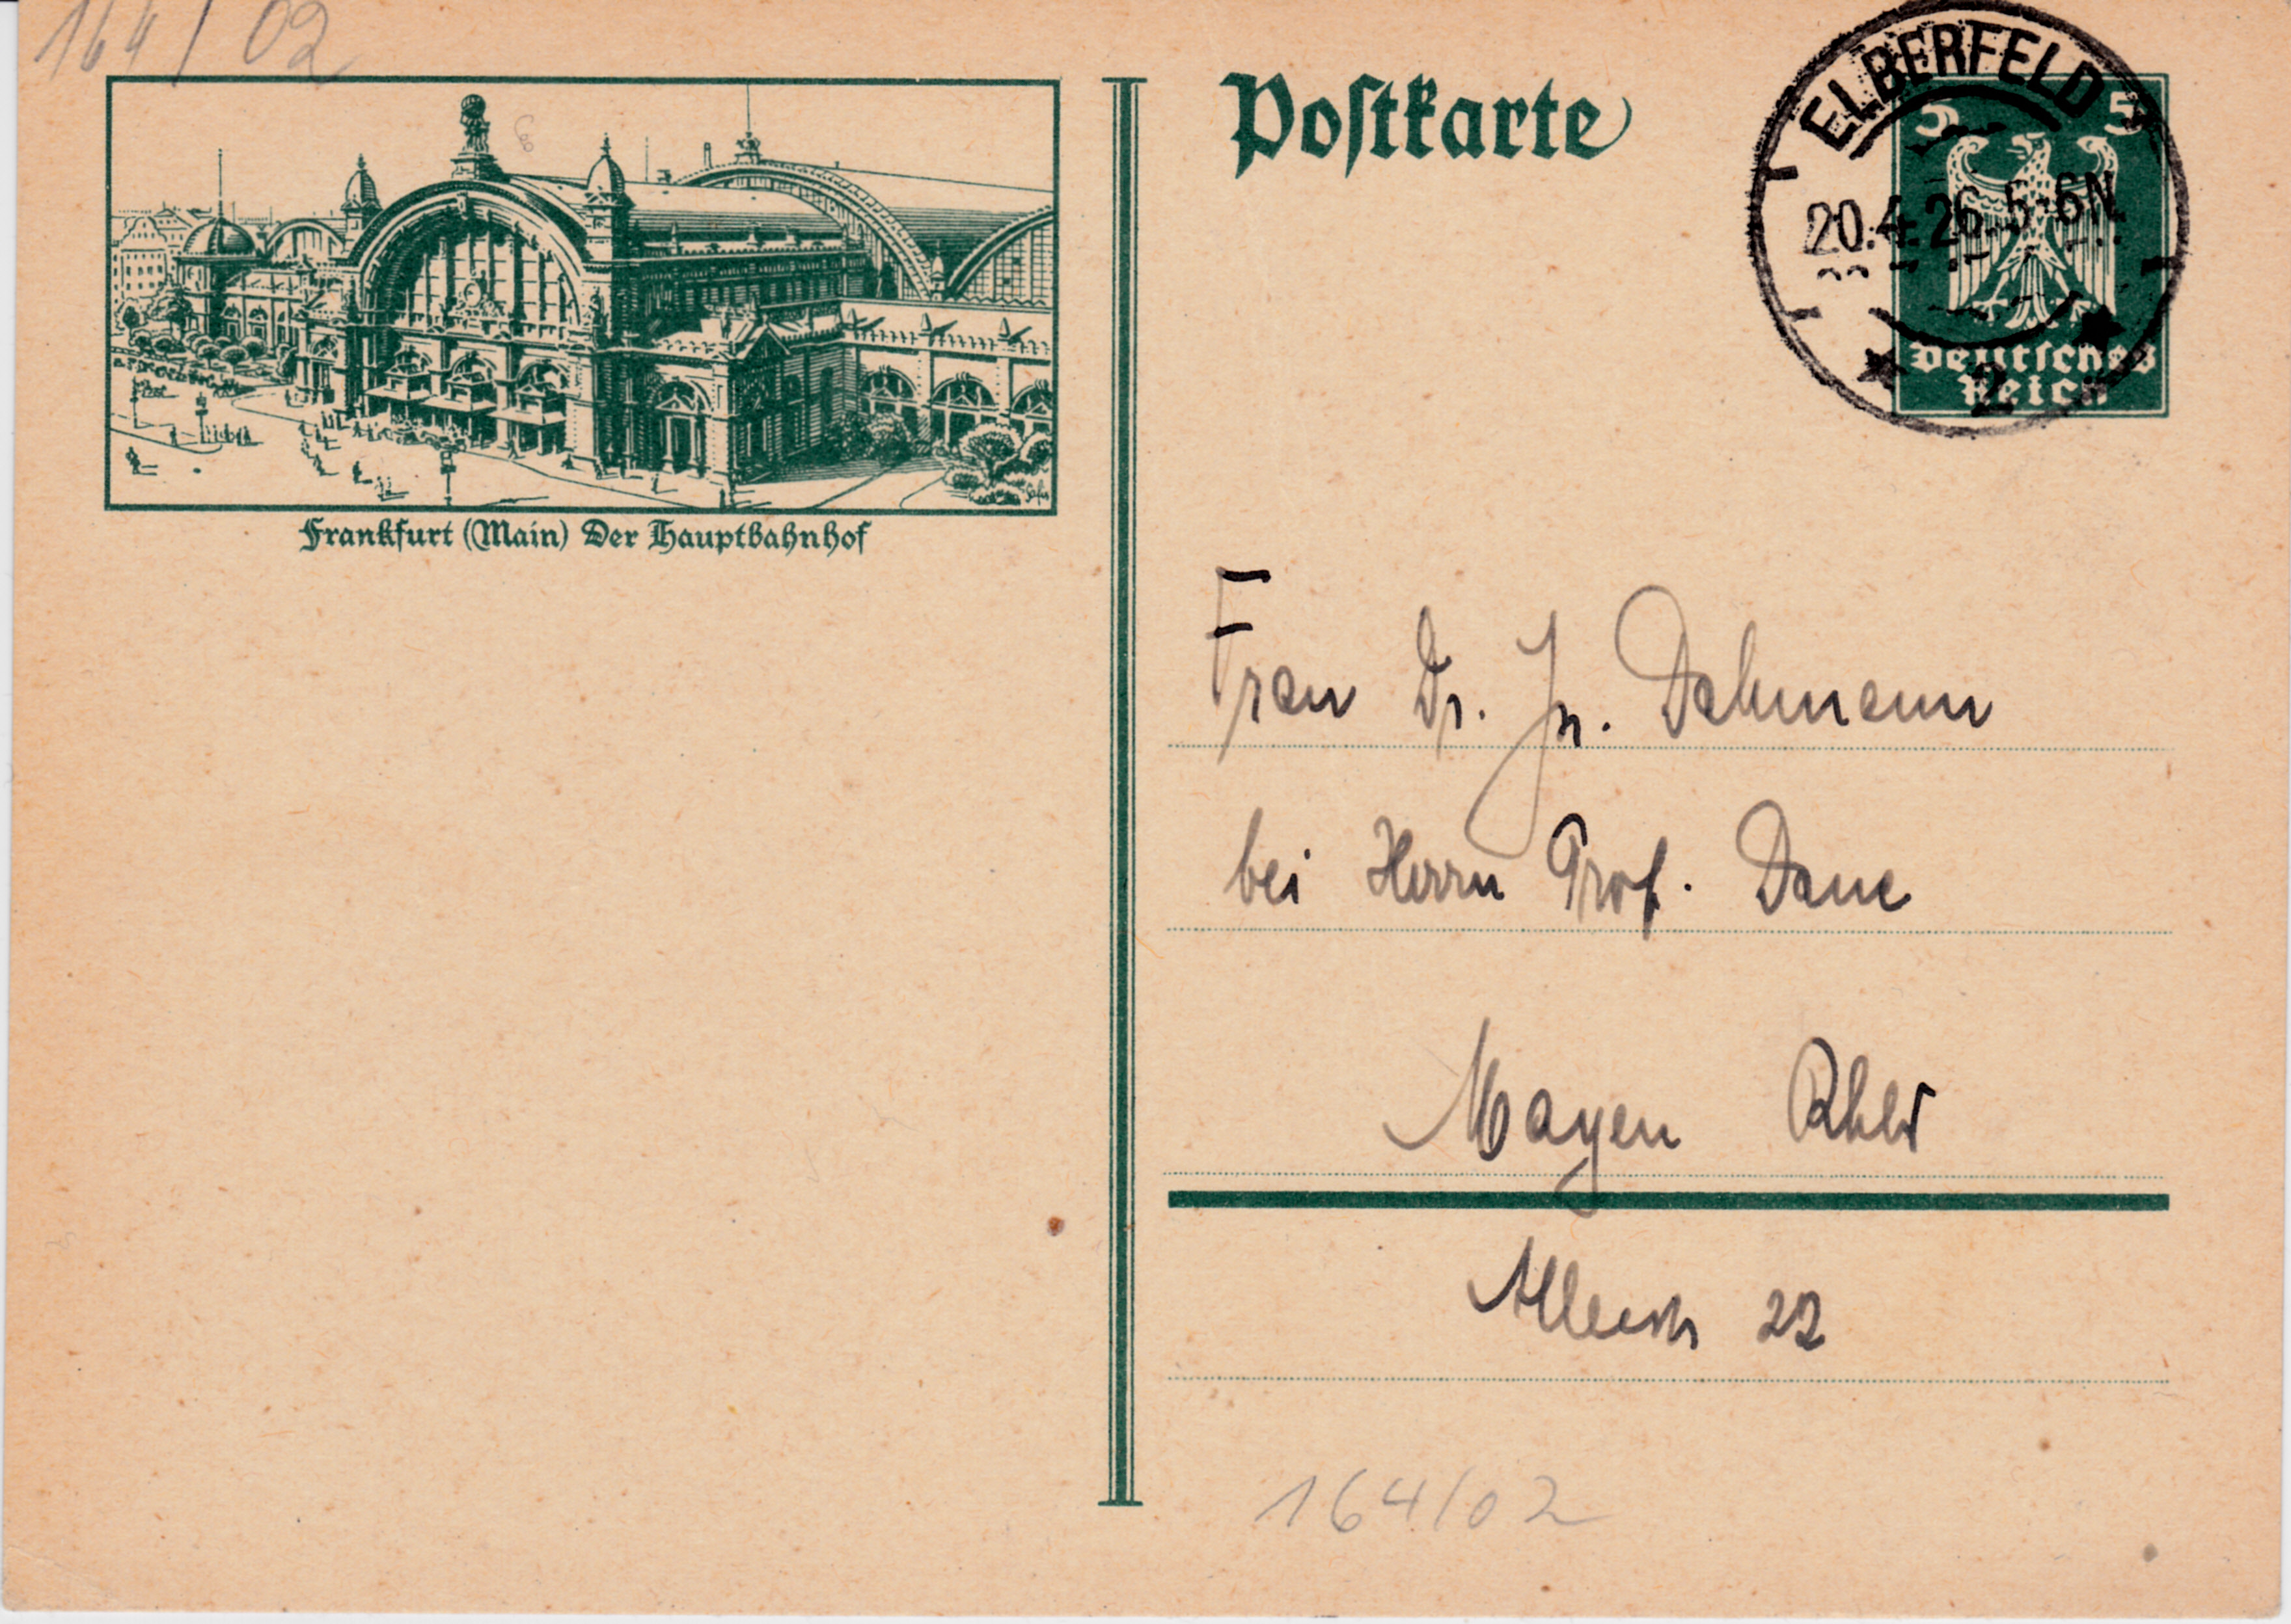 164/02
Postkarte
ELBERFELD
20.4.26. 5-6N
2
5 5
Deutsches
Reich
Frankfurt (Main) Der Hauptbahnhof
Frau Dr. Jn. Dahmann
bei Herrn Prof. Dane
Mayen Rhld
Alleestr 22
164/02